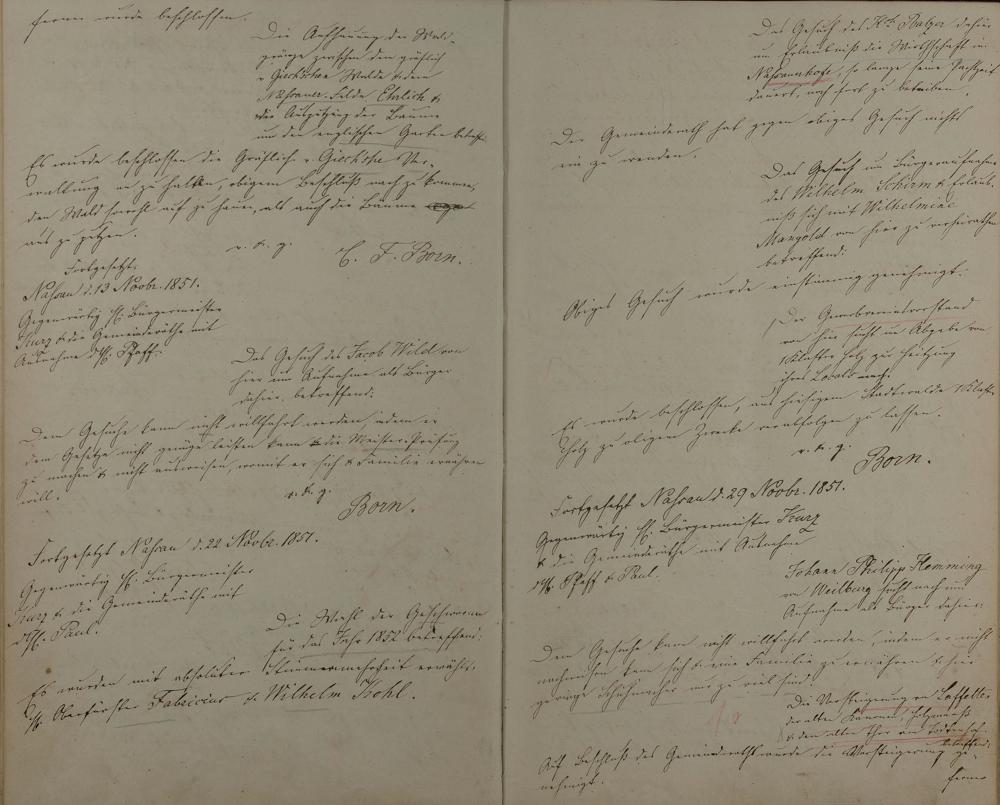 ferner wurde beschlossen.
Die Aufhauung der Wald-
gränze zwischen dem gräflich
v. Giech'schen Walde & dem
Nassauer Felde Ehrlich &
die Ausputzung der Bäume
um den englischen Garten betreff.
Es wurde beschlossen die Gräflich v. Giech'sche Ver-
waltung an zu halten, obigem Beschluß nach zu kommen,
den Wald sowohl auf zu hauen, als auch die Bäume
aus zu putzen.
v. d. g.
C. F. Born.
Fortgesetzt,
Nassau d. 13 Novbr. 1851.
Gegenwärtig H. Bürgermeister
Kurz & die Gemeinderäthe mit
Ausnahme d. H. Pfaff.
Das Gesuch des Jacob Wild von
hier um Aufnahme als Bürger
dahier, betreffend.
Dem Gesuche kann nicht willfahrt werden, indem er
dem Gesetze nicht genüge leisten kann & die Meister-Prüfung
zu machen & nicht ausweisen, womit er sich & Familie ernähren
will.
v. d. g.
Born.
Fortgesetzt Nassau d. 22 Novbr. 1851.
Gegenwärtig H. Bürgermeister
Kurz & die Gemeinderäthe mit
d. H. Paul.
Die Wahl der Geschworenen
für das Jahr 1852 betreffend:
Es wurden mit absoluter Stimmenmehrheit erwählt,
H. Oberförster Fabricius & Wilhelm Kohl.
Das Gesuch des Balzer dahier
um Erlaubniß die Wirthschaft im
Nassauerhofe, so lange seine Pachtzeit
dauert, noch fort zu betreiben.
Der Gemeinderath hat gegen obiges Gesuch nichts
ein zu wenden.
Das Gesuch um Bürgeraufnahme
des Wilhelm Schirm & Erlaub-
niß sich mit Wilhelmine
Mangold von hier zu verheirathen
betreffend:
Obiges Gesuch wurde einstimmig genehmigt.
Der Gewerbevereinsvorstand
von hier sucht um Abgabe von
1 Klafter Holz zur Heitzung
ihres Locals nach.
Es wurde beschlossen, aus hiesigem Stadtwalde 1 Klaft.
Holz zu obigem Zwecke verabfolgen zu lassen.
v. d. g.
Born.
Fortgesetzt Nassau d. 29 Novbr. 1851.
Gegenwärtig H. Bürgermeister Kurz
& die Gemeinderäthe mit Ausnahme
d. H. Pfaff & Paul.
Johann Philipp Hemming
von Weilburg sucht nach um
Aufnahme als Bürger dahier:
Dem Gesuche kann nicht willfahrt werden, indem er nicht
nachweisen kann sich & eine Familie zu ernähren & hier
genug Schuhmacher nur zu viel sind.
Die Versteigerung der Laffette
der alten Kanonen,
& dem alten Thor am
betreffend:
Auf Beschluß des Gemeinderaths wurde die Versteigerung ge-
nehmigt.
ferner